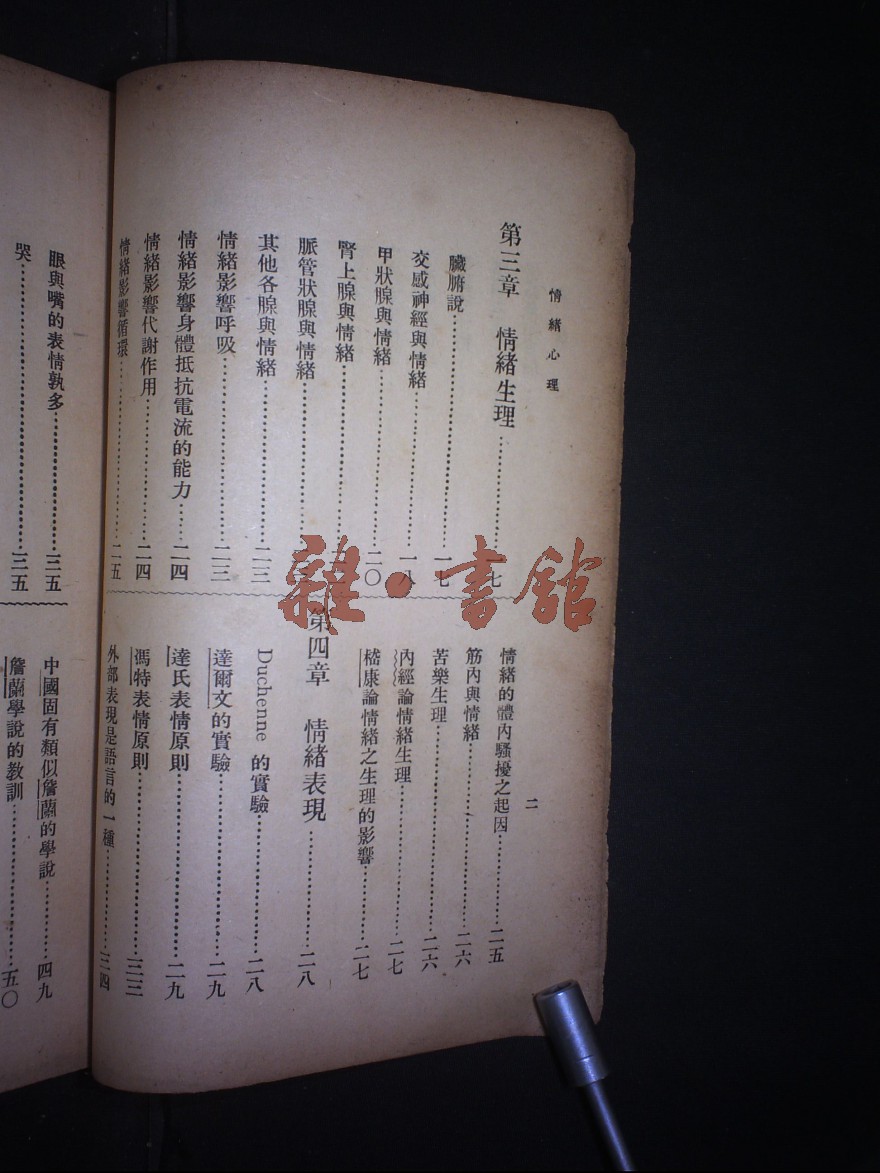 情緒心理
二
第三章 情緒生理……………一七
臟腑說……………一七
交感神經與情緒……………一八
甲狀腺與情緒……………二〇
腎上腺與情緒……………
脈管狀腺與情緒……………
其他各腺與情緒……………二三
情緒影響呼吸……………二三
情緒影響身體抵抗電流的能力……二四
情緒影響代謝作用……………二四
情緒影響循環……………二五
情緒的體內騷擾之起因……………二五
筋內與情緒……………二六
苦樂生理……………二六
內經論情緒生理……………二七
嵇康論情緒之生理的影響……………二七
第四章 情緒表現……………二八
Duchenne 的實驗……………二八
達爾文的實驗……………二九
達氏表情原則……………二九
馮特表情原則……………三三
外部表現是語言的一種……………三四
眼與嘴的表情孰多……………三五
哭……………三五
中國固有類似詹蘭的學說……………四九
詹蘭學說的教訓……………五〇
雜·書館